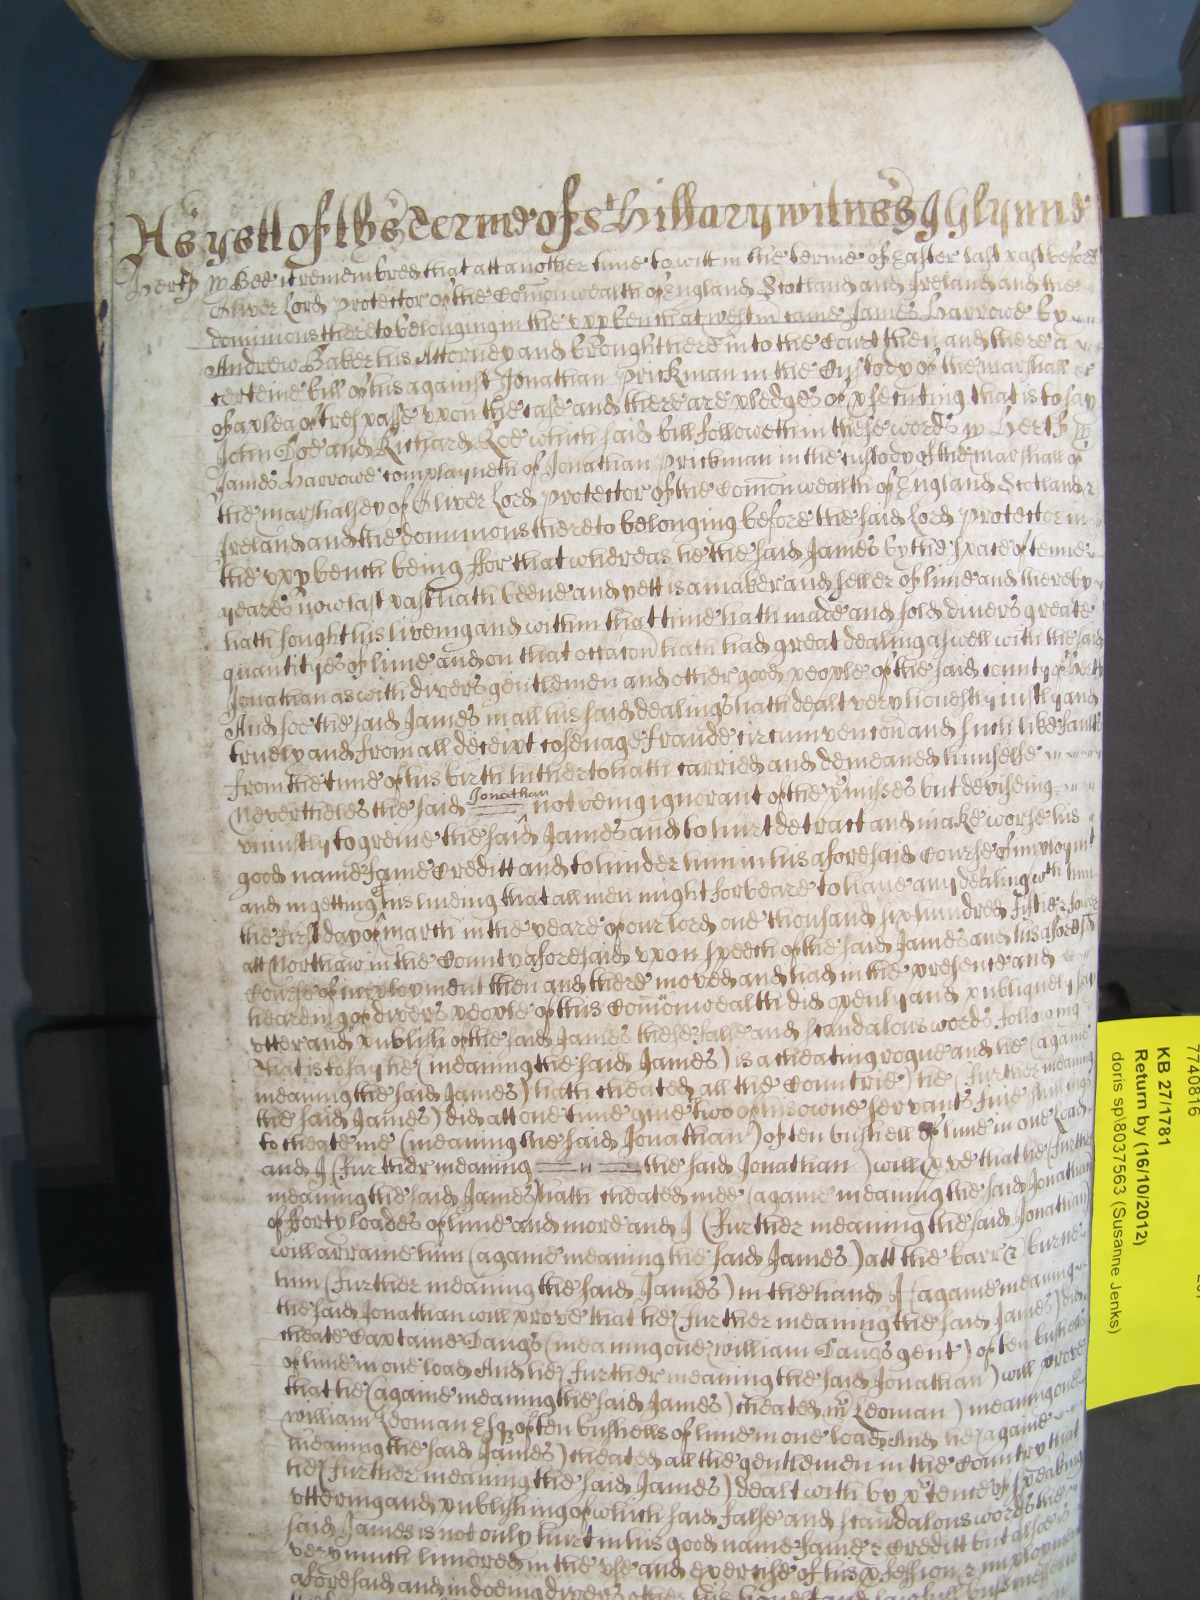 As yett of the terme of St Hillary witnes J Glynn
Hertf ss Bee it remembred that att another time to witt in the terme of Easter last past before
Oliver Lord Protector of the Comonwealth of England Scotland and Ireland and the
dominions thereto belonging in the upp bench att Westm came James Harrowe by
Andrew Baker his Attorney and brought here into the Court then and there a
certeine bill of his against Jonathan Prickman in the Custody of the marshall &c
of a plea of trespasse upon the case and there are pledges of psecuting that is to say
John Doe and Richard Roe which said bill followeth in these words ss Hertf ss
James Harrowe complayneth of Jonathan Prickman in the custody of the marshall of
the marshalsey of Oliver Lord Protector of the Comonwealth of England Scotland &
Ireland and the dominions thereto belonging before the said Lord Protector in
the upp bench being ffor that whereas he the said James by the space of tenne
yeares now last past hath beene and yett is a maker and seller of lime and thereby
hath sought his liveing and within that time hath made and sold divers greate
quantityes of lime and on that occacon hath had great dealing aswell with the said
Jonathan as with divers gentlemen and other good people of the said county of Hertf
And soe the said James in all his said dealings hath dealt very honestly justly and
truely and from all deceipt cosenage fraude circumvencon and such like faults
from the time of his birth hitherto hath carried and demeaned himselfe
Neverthelesse the said Jonathan not being ignorant of the pmisses but deviseing
uniustly to greive the said James and to hurt detract and make worse his
good name fame Creditt and to hinder him in his aforesaid Course of imploymt
and in getting his liveing that all men might forbeare to have any dealing wth him
the first day of march in the yeare of our lord one thousand six hundred fiftie & fower
att Northaw in the County aforesaid upon speech of the said James and his aforesd
Course of imployment then and there moved and had in the presence and
hearing of divers people of this Comonwealth did openly and publiquely say
utter and publish of the said James these false and scandalous words following
that is to say he (meaning the said James) is a cheating rogue and he (againe
meaning the said James) hath cheated all the Countrie he (further meaning
the said James) did att one time give two of his owne servants five shillings
to cheate me (meaning the said Jonathan) of ten bushells of lime in one load
and I (further meaning the said Jonathan) will prove that he (further
meaning the said James) hath cheated mee (againe meaning the said Jonathan
of fforty loades of lime and more and I (further meaning the said Jonathan)
will arraine him (againe meaning the said James) att the barr & burne
him (further meaning the said James) in the hand I (againe meaning
the said Jonathan will prove that he (further meaning the said James) did
cheate Captaine Dangs (meaning one William Dangs gent) of ten bushells
of lime in one load And he (further meaning the said Jonathan) will prove
that he (againe meaning the said James) cheated mr Leoman) meaning one
William Leoman Esq of ten bushells of lime in one load And he (againe
meaning the said James) cheated all the gentlemen in the Country that
he (further meaning the said James) dealt with by ptence of speaking
uttering and publishing of which said false and scandalous words the
said James is not only hurt in his good name fame & Creditt but alsoe is
very much hindred in the use and exercise of his pfession & imployment
aforesaid and in doeing divers other his honest and lawfull businesses
7740816
KB 27/1781
Return by (16/10/2012)
doris sp\8037563 (Susanne Jenks)